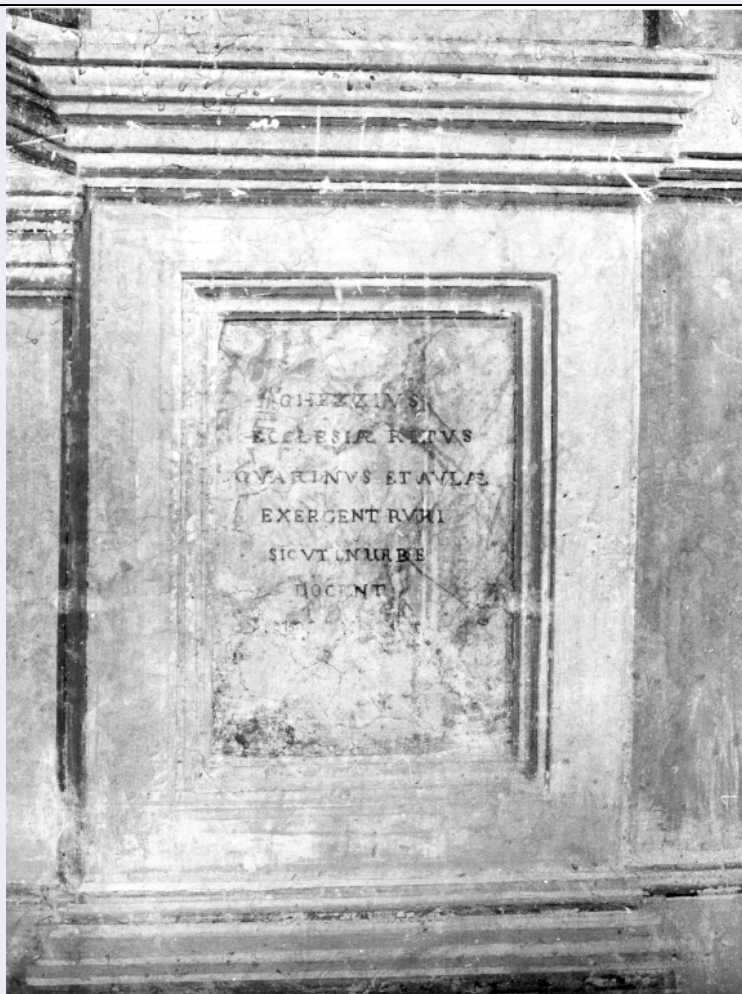 GHEZZIVS
ECCLESIÆ RITVS
GVARINVS ET AVLÆ
EXERCENT RVRI
SICVT IN URBE
DOCENT